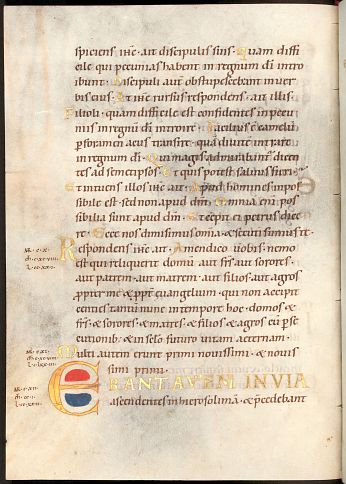 spiciens ihc · ait discipulis suis · Quam diffi
cile qui pecunias habent in regnum dī intro
ibunt · Discipuli aut obstupescebant in uer
bis eius · Et ihc rursus respondens · ait illis ·
Filioli · quam difficile est confidentes in pecu
niis in regnū dī introire · Facilius ē camelū
p foramen acus transire · quā diuitē intrare
in regnum dī · Qui magis admirabunt̄ dicen
tes ad semetipsos · Et quis potest saluus fieri ·
Et intuens illos ihc ait · Apud homines impos
sibile est · sed non apud dm̄ · Omnia enī pos
sibilia sunt apud dm̄ · Et cepit ei petrus dice
re · Ecce nos dimisimus omīa · & secuti sumus te ·
Respondens ihc ait · Amen dico uobis · nemo
est qui reliquerit domū aut frs̄ · aut sorores ·
aut patrem · aut matrem · aut filios · aut agros
ppter me & ppt̄ euangelium · qui non accipiat
centies tantū nunc in tempore hoc · domos &
frs̄ · & sorores · & matres · & filios · & agros cū pse
cutionib; · & in sclo futuro uitam aeternam ·
Multi autem erunt primi nouissimi · & nouis
simi primi ·
ERANT AUTEM IN UIA
ascendentes in hierosolimā · & pcedebant